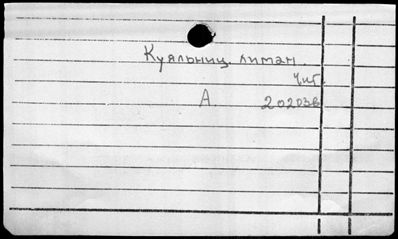 Куяльниц. лиман.
Чиг.
А. 202036